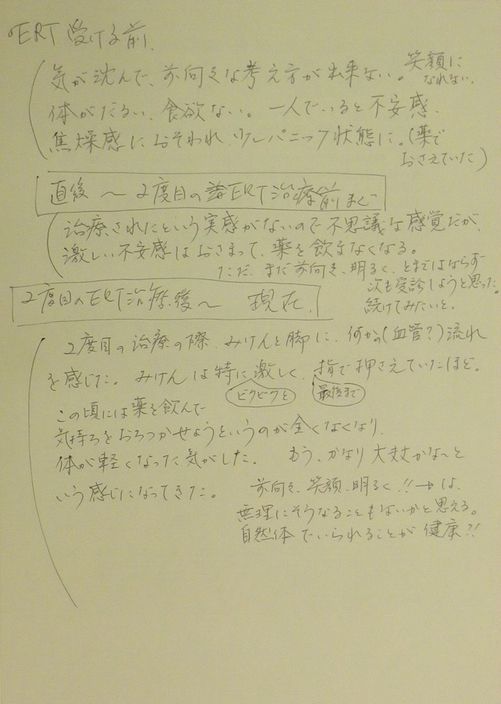 ERT 受ける前、
気が沈んで、前向きな考え方が出来ない。笑顔に
なれない。
体がだるい、食欲ない。一人でいると不安感、
焦燥感におそわれ 少しパニック状態に。(薬で
おさえていた)
直後 〜 2度目の ERT治療前まで
治療されたという実感がないので不思議な感覚だが、
激しい不安感はおさまって、薬を飲まなくなる。
ただ、まだ前向き、明るく、とまではならず
次も受診しようと思った。
続けてみたいと。
2度目のERT治療後〜 現在、
2度目の治療の際、みけんと脚に、何か(血管?)流れ
を感じた。みけんは特に激しく、指で押さえていたほど。
ビクビクと 最後まで
この頃には薬を飲んで
気持ちをおちつかせようというのが全くなくなり、
体が軽くなった気がした。 もう、かなり大丈夫かな〜と
いう感じになってきた。
前向き、笑顔、明るく!!→は、
無理にそうなることもないかと思える。
自然体でいられることが健康?!